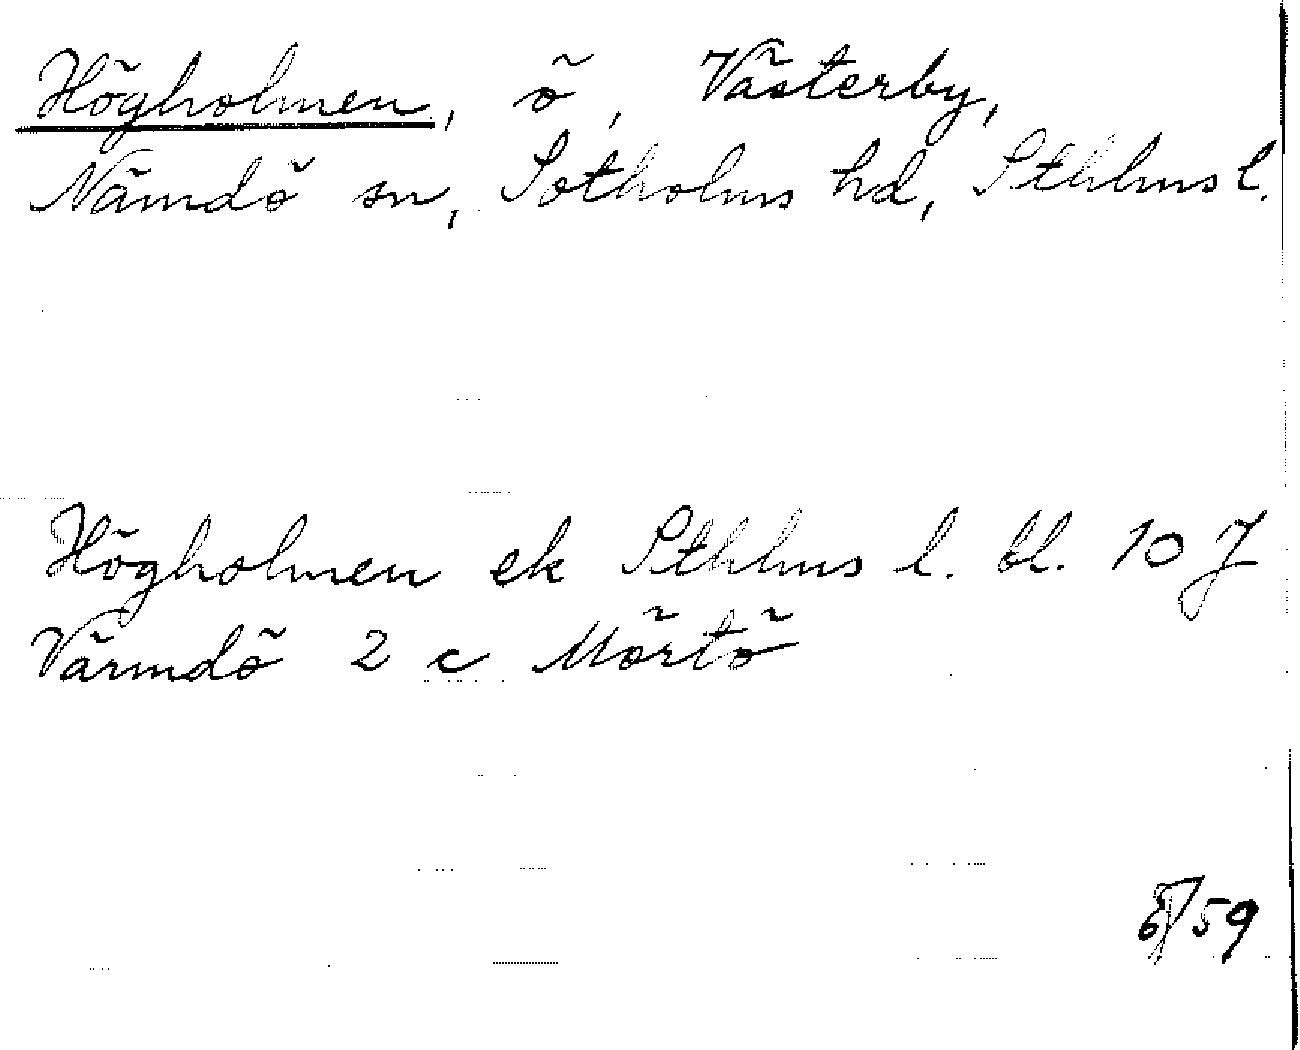 Högholmen, ö, Västerby,
Nämdö sn, Sotholms hd, Sthlms l.
Högholmen ek Sthlms l. bl. 10 J
Värmdö 2 c Mörtö
59